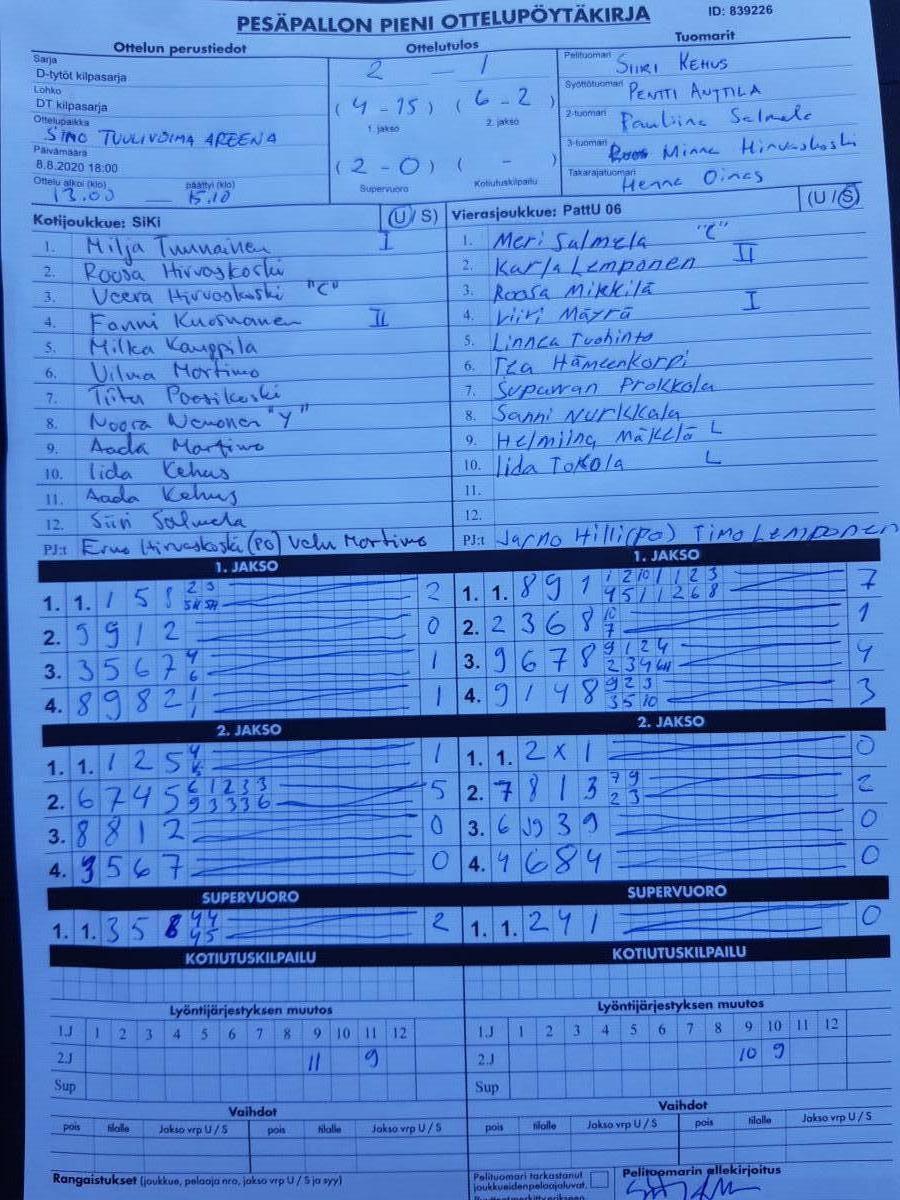 PESÄPALLON PIENI OTTELUPÖYTÄKIRJA ID: 839226
Ottelun perustiedot Ottelutulos Tuomarit
Sarja
D-tytöt kilpasarja
Lohko
DT kilpasarja
Ottelupaikka
SIMO TUULIVOIMA AREENA
Päivämäärä
8.8.2020 18:00
Ottelu alkoi (klo) päättyi (klo)
13.00 — 15.10
2 — 1
(4-15) (6-2)
1. jakso 2. jakso
(2-0) ( - )
Supervuoro Kotiutuskilpailu
Pelituomari SIIRI KEHUS
Syöttötuomari PENTTI ANTTILA
2-tuomari Pauliina Salmela
3-tuomari Minna Hirvaskoski
Takarajatuomari Henna Oinas
Kotijoukkue: SiKi (U/S)
1. Milja Tuunainen I
2. Roosa Hirvaskoski
3. Veera Hirvaskoski "C"
4. Fanni Kuosmanen II
5. Milka Kauppila
6. Vilma Martimo
7. Tiitu Poosikoski
8. Noora Nenonen "Y"
9. Aada Martimo
10. Iida Kehus
11. Aada Kehus
12. Siiri Salmela
PJ:t Erno Hirvaskoski (PO) Velu Martimo
Vierasjoukkue: PattU 06 (U/S)
1. Meri Salmela "C"
2. Karla Lemponen II
3. Roosa Mikkilä
4. Viiri Mäyrä I
5. Linnea Tuohinto
6. Tea Hämeenkorpi
7. Supawan Prokkola
8. Sanni Nurkkala
9. Helmiina Mäkelä L
10. Iida Tokola L
11.
12.
PJ:t Jarno Hilli (PO) Timo Lemponen
1. JAKSO 1. JAKSO
1. 1. 1 5 8 2 3 2
2. 9 9 1 2 0
3. 3 5 6 7 4 6 1
4. 8 9 8 2 1 1 1
1. 1. 8 9 1 1 2 10 1 1 2 3 7
4 5 1 1 2 6 8
2. 2 3 6 8 10 7 1
3. 9 6 7 8 9 1 2 4 4
4. 9 1 4 8 9 2 3 3
3 5 10
2. JAKSO 2. JAKSO
1. 1. 1 2 5 4 1
2. 6 7 4 5 6 1 2 3 3 5
9 3 3 3 6
3. 8 8 1 2 0
4. 3 5 6 7 0
1. 1. 2 X 1 0
2. 7 8 1 3 7 9 2
2 3
3. 6 39 0
4. 4 6 8 4 0
SUPERVUORO SUPERVUORO
1. 1. 3 5 8 4 4 2
4 5
1. 1. 2 4 1 0
KOTIUTUSKILPAILU KOTIUTUSKILPAILU
Lyöntijärjestyksen muutos Lyöntijärjestyksen muutos
1.J 1 2 3 4 5 6 7 8 9 10 11 12 1.J 1 2 3 4 5 6 7 8 9 10 11 12
2.J 11 9 2.J 10 9
Sup Sup
Vaihdot Vaihdot
pois tilalle Jakso vrp U / S pois tilalle Jakso vrp U / S pois tilalle Jakso vrp U / S pois tilalle Jakso vrp U / S
Rangaistukset (joukkue, pelaaja nro, jakso vrp U / S ja syy) Pelituomari tarkastanut Pelituomarin allekirjoitus
joukkueidenpelaajaluvat.